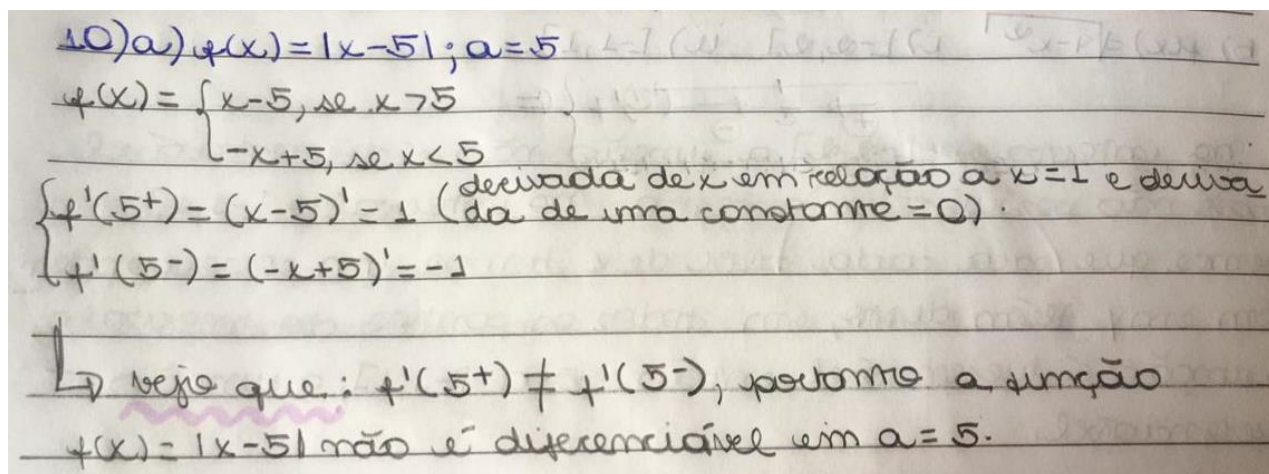 10)a) f(x) = |x-5|; a=5
f(x) = { x-5, se x>5
-x+5, se x<5
{ f'(5+) = (x-5)' = 1 (derivada de x em relação a x=1 e deriva
da de uma constante = 0).
f'(5-) = (-x+5)' = -1
↳ veja que: f'(5+) ≠ f'(5-), portanto a função
f(x) = |x-5| não é diferenciável em a = 5.